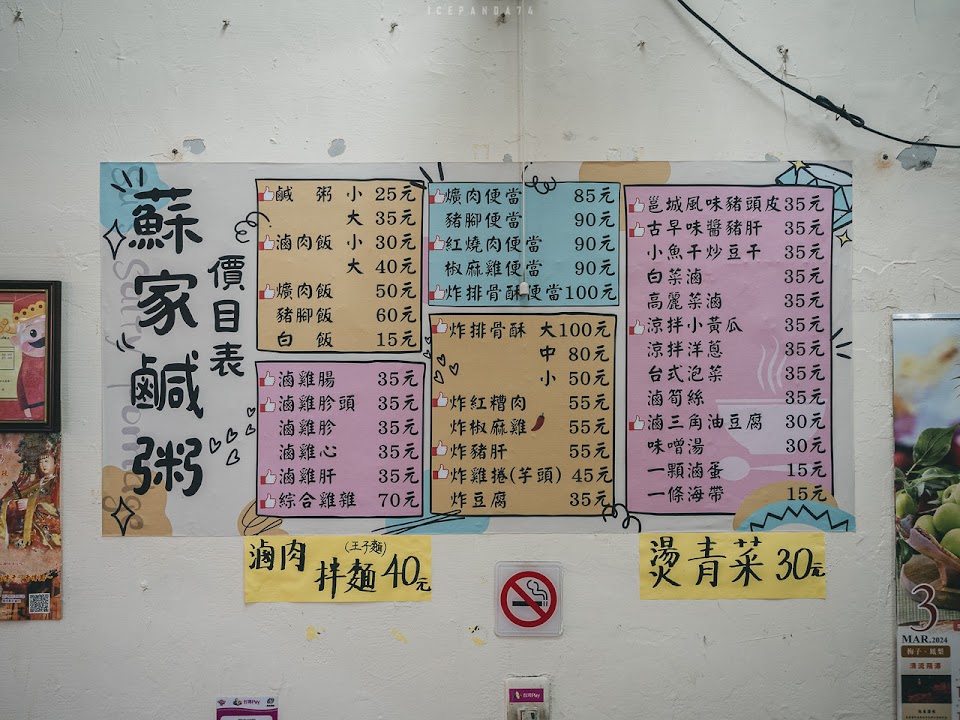 ICEPANDA74
蘇家鹹粥
價目表
鹹粥 小 25元
大 35元
滷肉飯 小 30元
大 40元
爌肉飯 50元
豬腳飯 60元
白飯 15元
滷雞腸 35元
滷雞胗頭 35元
滷雞胗 35元
滷雞心 35元
滷雞肝 35元
綜合雞雜 70元
爌肉便當 85元
豬腳便當 90元
紅燒肉便當 90元
椒麻雞便當 90元
炸排骨酥便當100元
炸排骨酥 大100元
中 80元
小 50元
炸紅糟肉 55元
炸椒麻雞 55元
炸豬肝 55元
炸雞捲(芋頭) 45元
炸豆腐 35元
邕城風味豬頭皮35元
古早味醬豬肝 35元
小魚干炒豆干 35元
白菜滷 35元
高麗菜滷 35元
涼拌小黃瓜 35元
涼拌洋蔥 35元
台式泡菜 35元
滷筍絲 35元
滷三角油豆腐 30元
味噌湯 30元
一顆滷蛋 15元
一條海帶 15元
滷肉(王子麵)拌麵40元
燙青菜30元
3
MAR.2024
梅子·鳳梨
台灣Pay
台灣Pay